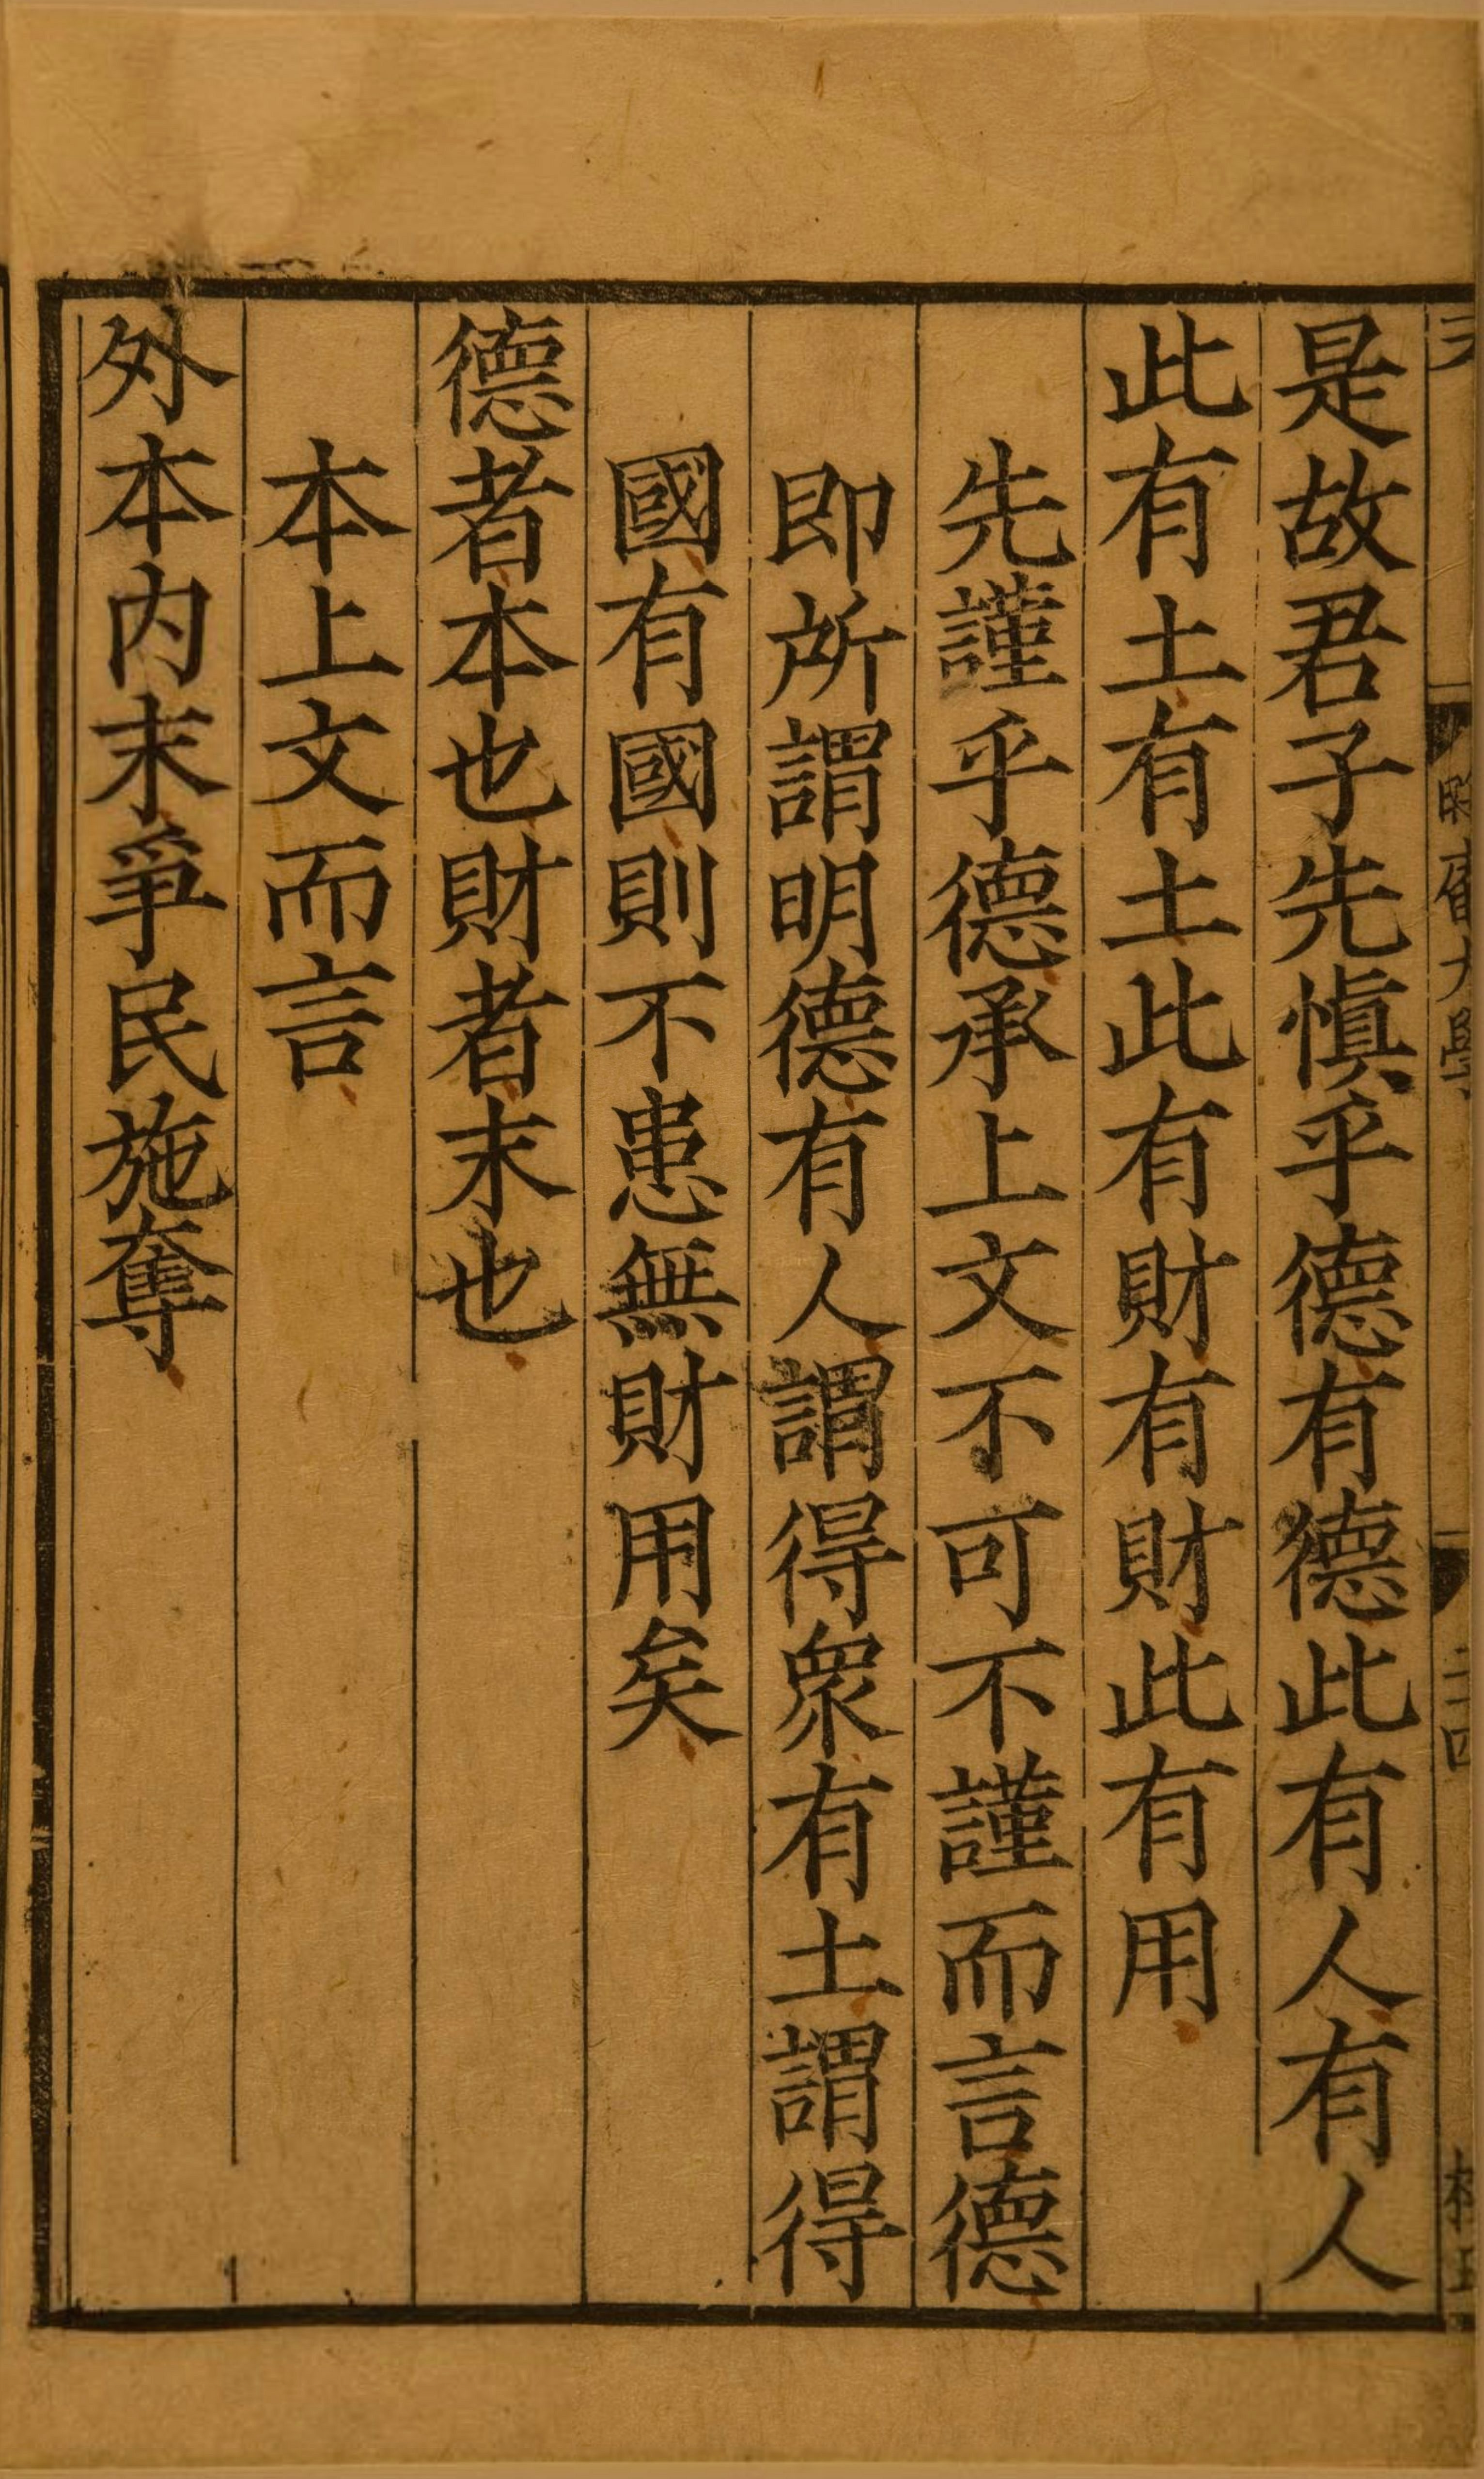 是故君子先慎乎德有德此有人有人
此有土有土此有財有財此有用
先謹乎德承上文不可不謹而言德
即所謂明德有人謂得眾有土謂得
國有國則不患無財用矣
德者本也財者末也
本上文而言
外本內末爭民施奪